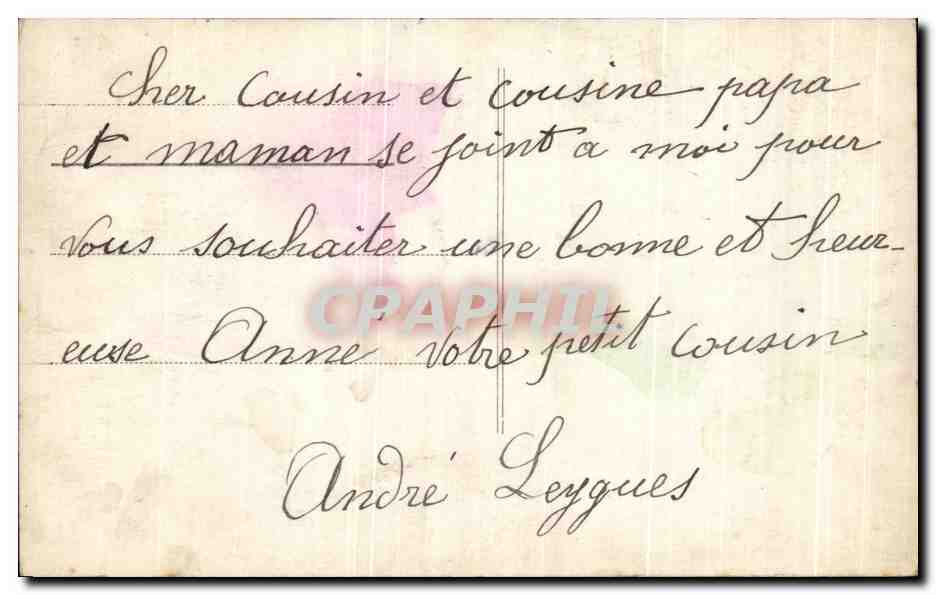 Cher Cousin et cousine papa
et maman se joint a moi pour
vous souhaiter une bonne et heur-
euse Anné votre petit cousin
André Leygues
CPAPHIL